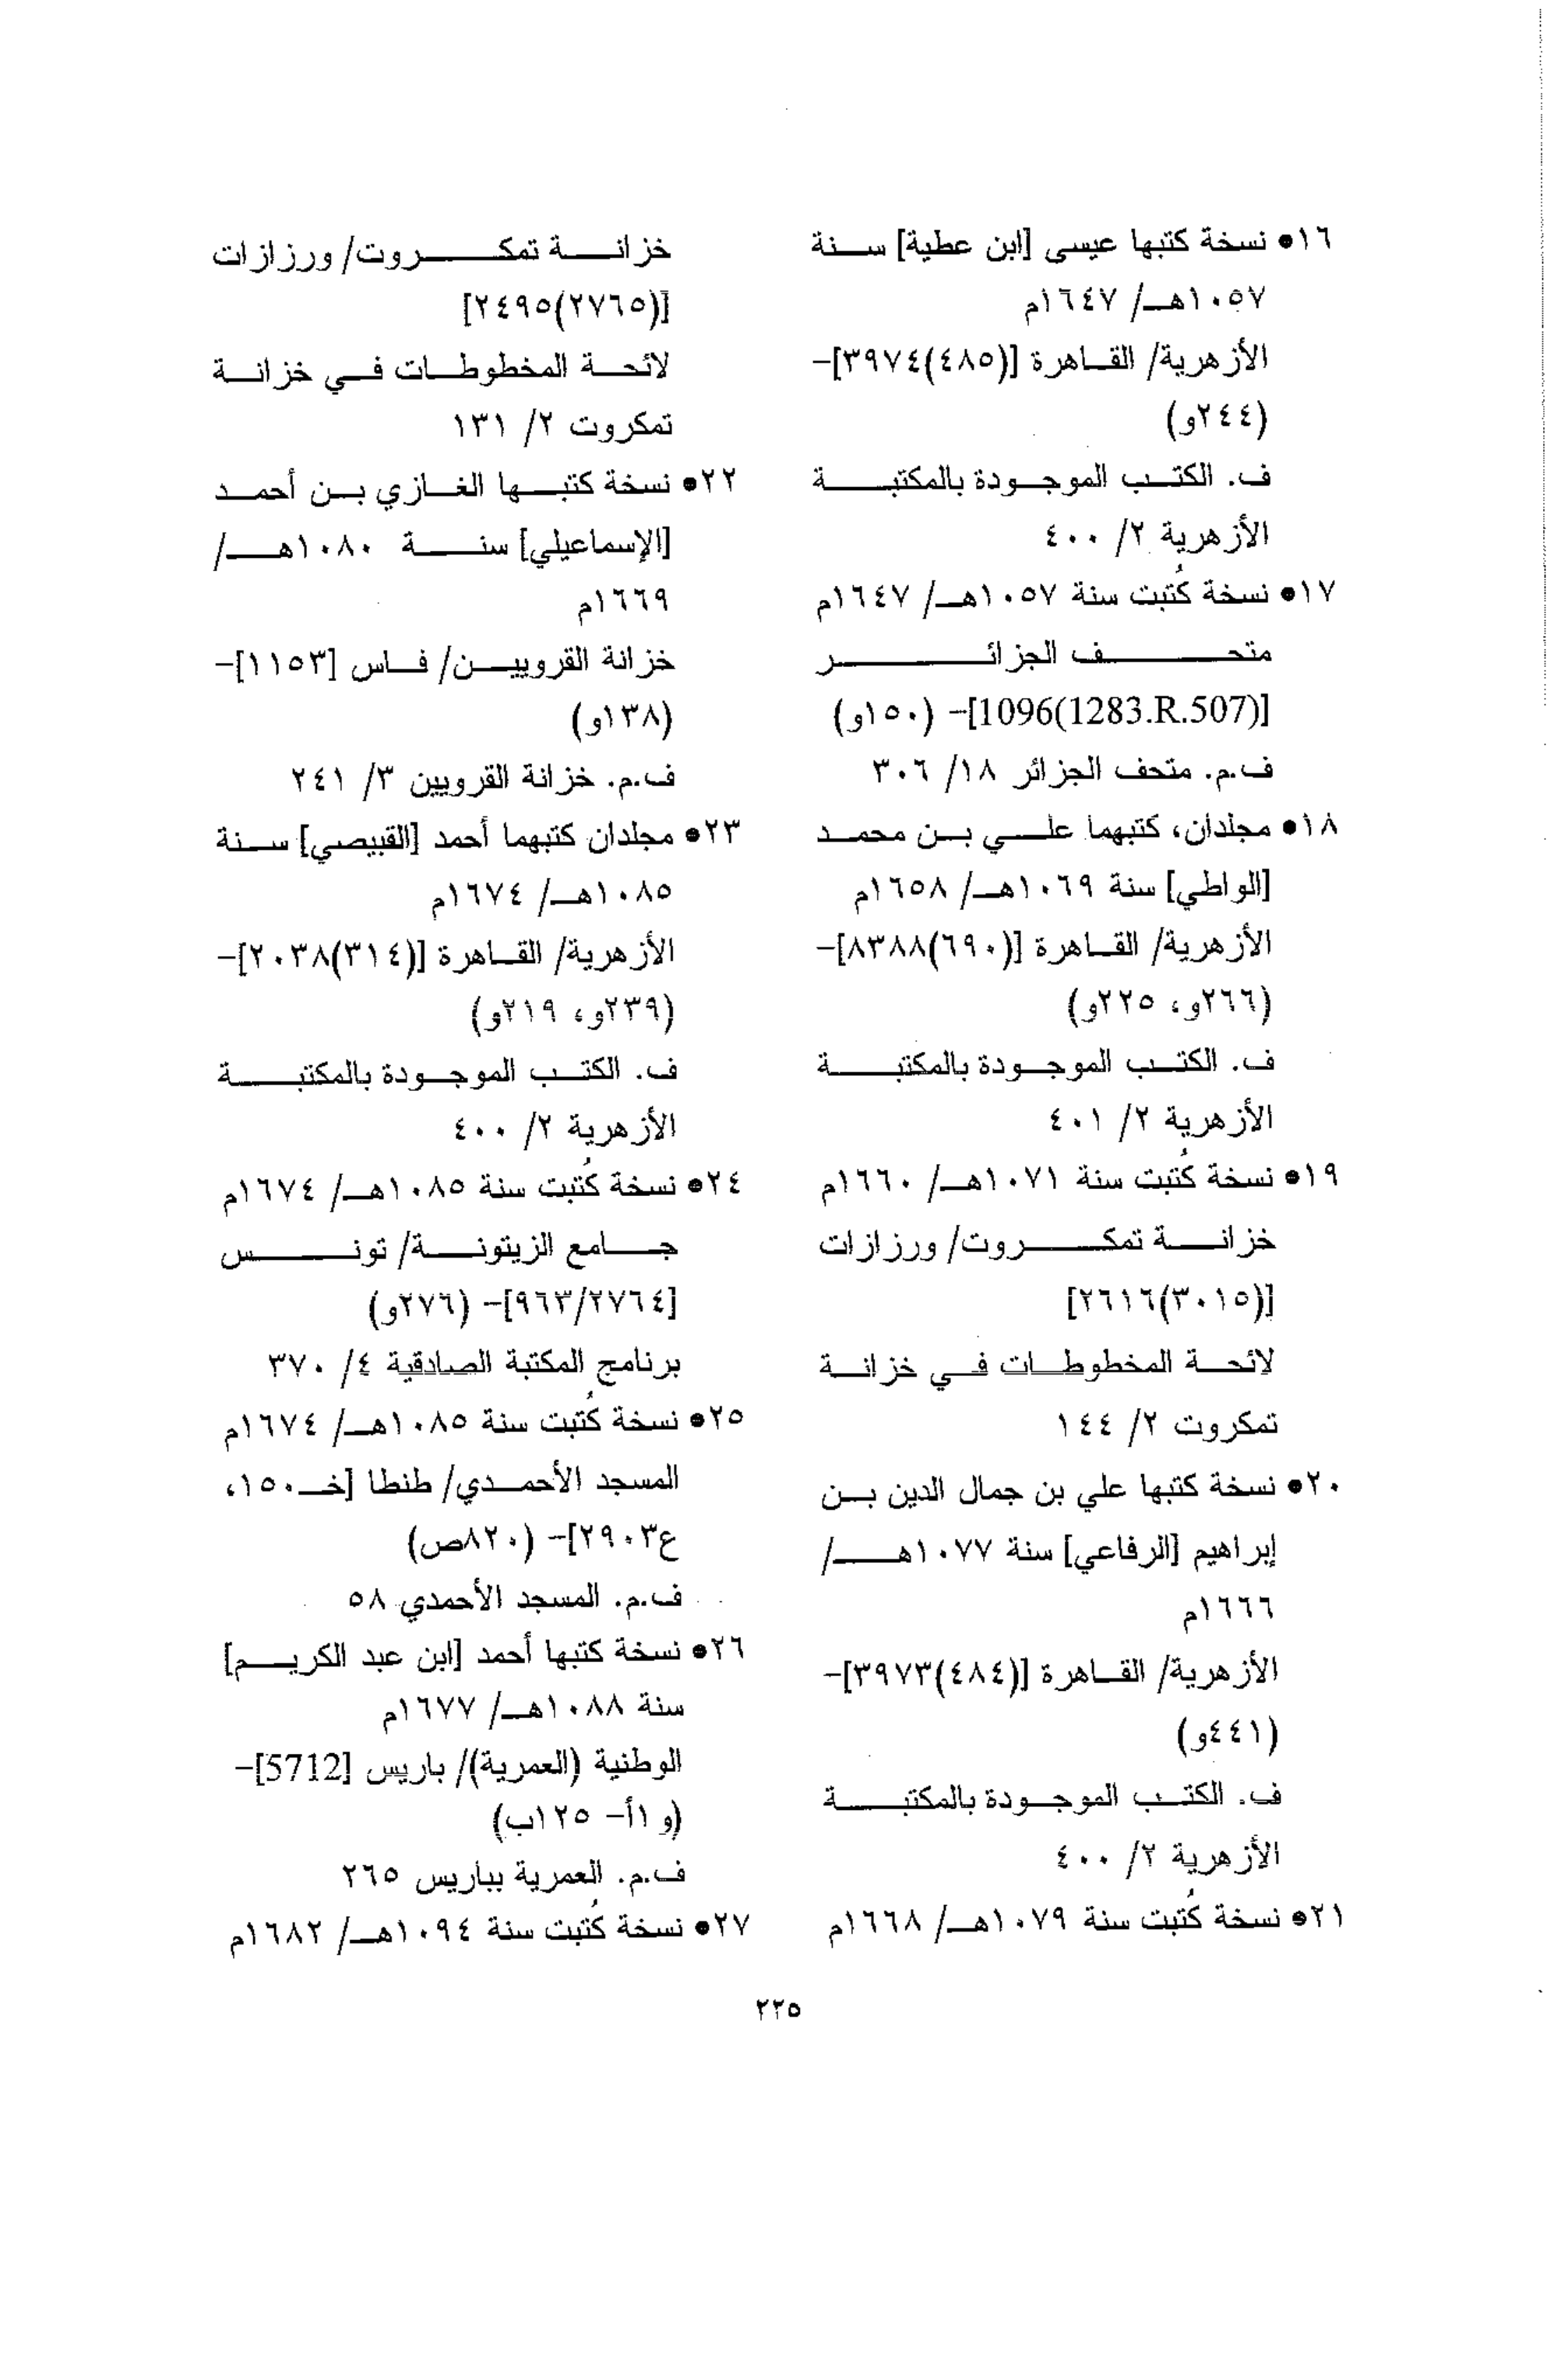 ١٦• نسخة كتبها عيسى [ابن عطية] سنة
١٠٥٧هـ/ ١٦٤٧م
الأزهرية/ القاهرة [(٤٨٥)٣٩٧٤]-
(٢٤٤و)
ف. الكتب الموجودة بالمكتبة
الأزهرية ٢/ ٤٠٠
١٧• نسخة كُتبت سنة ١٠٥٧هـ/ ١٦٤٧م
متحف الجزائر
[1096(1283.R.507)]- (١٥٠و)
ف.م. متحف الجزائر ١٨/ ٣٠٦
١٨• مجلدان، كتبهما علي بن محمد
[الواطي] سنة ١٠٦٩هـ/ ١٦٥٨م
الأزهرية/ القاهرة [(٦٩٠)٨٣٨٨]-
(٢٦٦و، ٢٢٥و)
ف. الكتب الموجودة بالمكتبة
الأزهرية ٢/ ٤٠١
١٩• نسخة كُتبت سنة ١٠٧١هـ/ ١٦٦٠م
خزانة تمكروت/ ورزازات
[(٣٠١٥)٢٦١٦]
لائحة المخطوطات في خزانة
تمكروت ٢/ ١٤٤
٢٠• نسخة كتبها علي بن جمال الدين بن
إبراهيم [الرفاعي] سنة ١٠٧٧هـ/
١٦٦٦م
الأزهرية/ القاهرة [(٤٨٤)٣٩٧٣]-
(٤٤١و)
ف. الكتب الموجودة بالمكتبة
الأزهرية ٢/ ٤٠٠
٢١• نسخة كُتبت سنة ١٠٧٩هـ/ ١٦٦٨م
خزانة تمكروت/ ورزازات
[(٢٧٦٥)٢٤٩٥]
لائحة المخطوطات في خزانة
تمكروت ٢/ ١٣١
٢٢• نسخة كتبها الغازي بن أحمد
[الإسماعيلي] سنة ١٠٨٠هـ/
١٦٦٩م
خزانة القرويين/ فاس [١١٥٣]-
(١٣٨و)
ف.م. خزانة القرويين ٣/ ٢٤١
٢٣• مجلدان كتبهما أحمد [القبيصي] سنة
١٠٨٥هـ/ ١٦٧٤م
الأزهرية/ القاهرة [(٣١٤)٢٠٣٨]-
(٢٣٩و، ٢١٩و)
ف. الكتب الموجودة بالمكتبة
الأزهرية ٢/ ٤٠٠
٢٤• نسخة كُتبت سنة ١٠٨٥هـ/ ١٦٧٤م
جامع الزيتونة/ تونس
[٩٦٣/٢٧٦٤]- (٢٧٦و)
برنامج المكتبة الصادقية ٤/ ٣٧٠
٢٥• نسخة كُتبت سنة ١٠٨٥هـ/ ١٦٧٤م
المسجد الأحمدي/ طنطا [خـ١٥٠،
ع٢٩٠٣]- (٨٢٠ص)
ف.م. المسجد الأحمدي ٥٨
٢٦• نسخة كتبها أحمد [ابن عبد الكريم]
سنة ١٠٨٨هـ/ ١٦٧٧م
الوطنية (العمرية)/ باريس [5712]-
(و ١أ- ١٢٥ب)
ف.م. العمرية بباريس ٢٦٥
٢٧• نسخة كُتبت سنة ١٠٩٤هـ/ ١٦٨٢م
٢٢٥